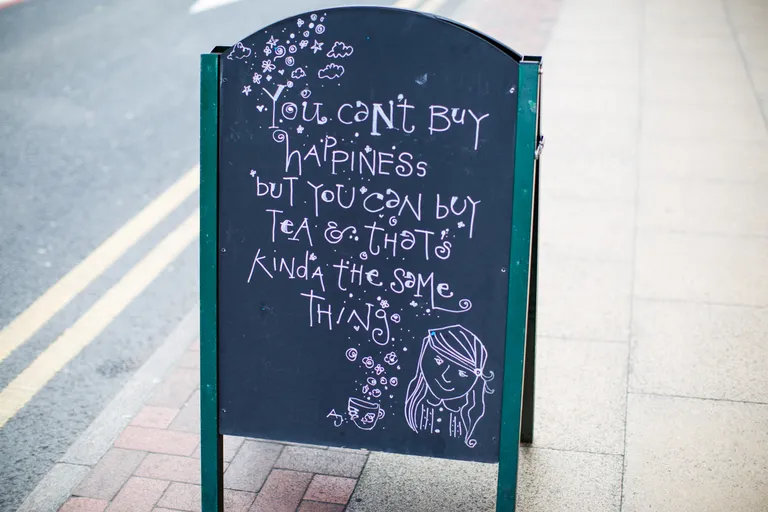 You can't Buy
happiness
but you can buy
tea & that's
kinda the same
thing